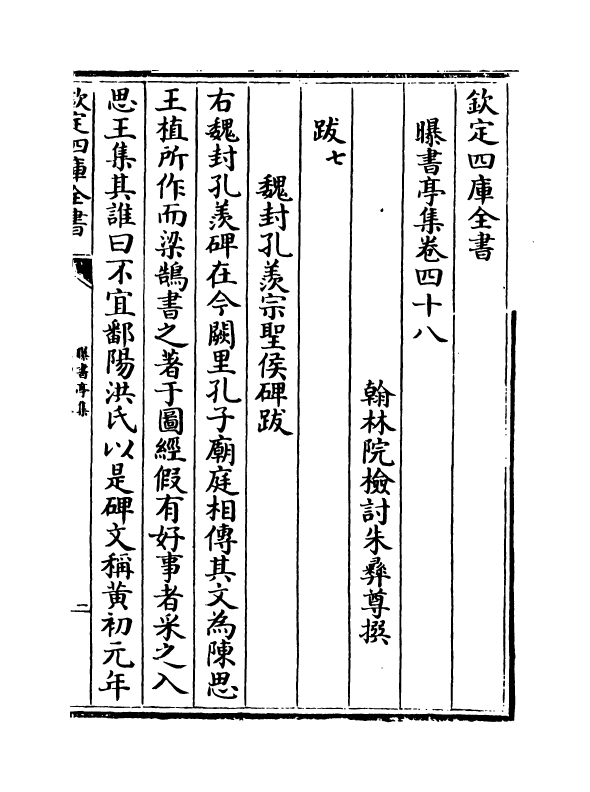 欽定四庫全書
曝書亭集卷四十八
翰林院檢討朱彝尊撰
跋七
魏封孔羨宗聖侯碑跋
右魏封孔羨碑在今闕里孔子廟庭相傳其文為陳思
王植所作而梁鵠書之著于圖經假有好事者采之入
思王集其誰曰不宜鄱陽洪氏以是碑文稱黄初元年
欽定四庫全書
曝書亭集
二